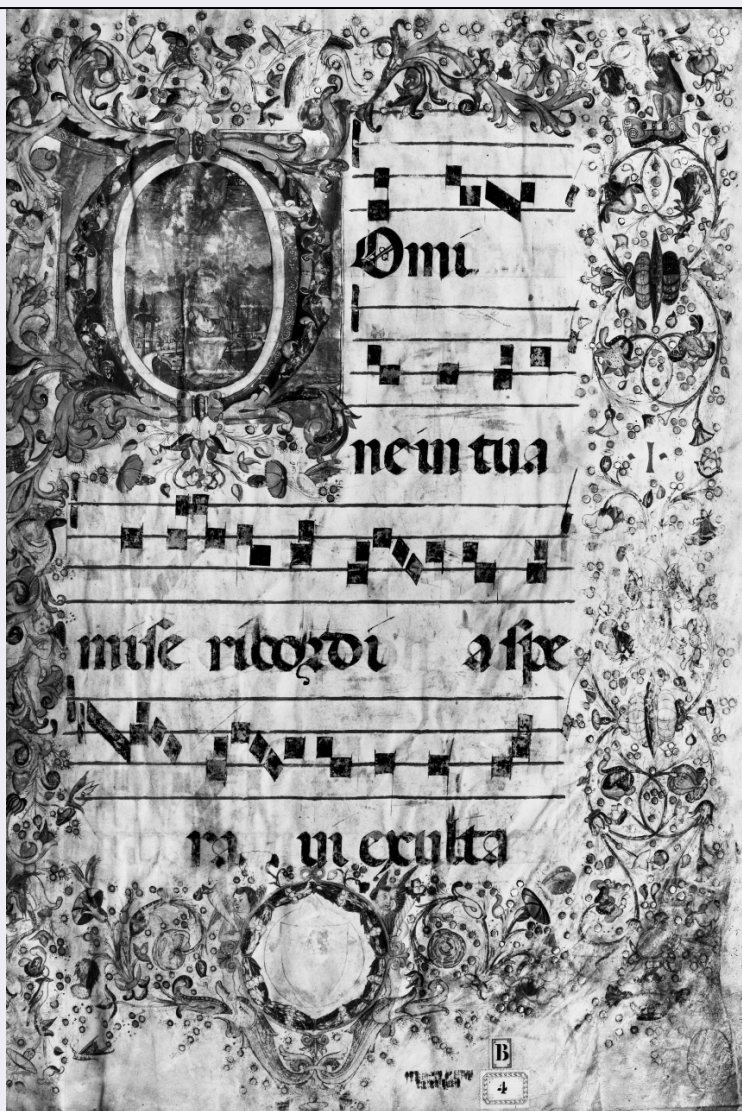 Omi
ne in tua
mise ricordi a spe
ra vi exulta
·I·
B
4